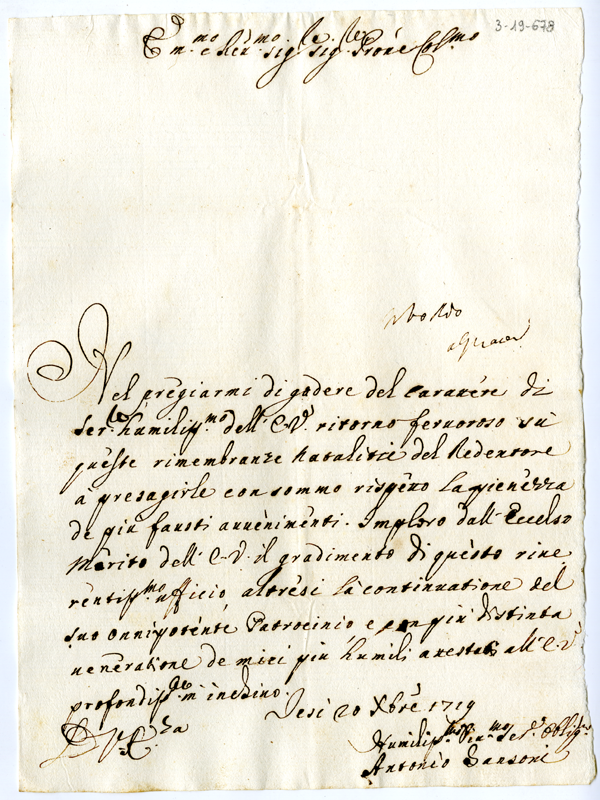 3-19-678
Em.mo e Rev.mo Sig.re Sig.re Prône Col.mo
Nel pregiarmi di godere del carattere di
ser.re humiliss.mo dell' E.V. ritorno fervoroso sù
queste rimembranze natalitie del Redentore
à presagirle con sommo rispetto la pienezza
de più fausti avvenimenti. Imploro dall' Eccelso
Merito dell' E.V. il gradimento di questo rive
rentiss.mo ufficio altresi la continuatione del
suo onnipotente Patrocinio e con più distinta
veneratione de miei più humili attestati all' E.V.
profondiss.te m' inchino.
Jesi 20 Xbre 1719
D. V. E.za
Humiliss.mo ser.re Oblig.
Antonio Sansoni